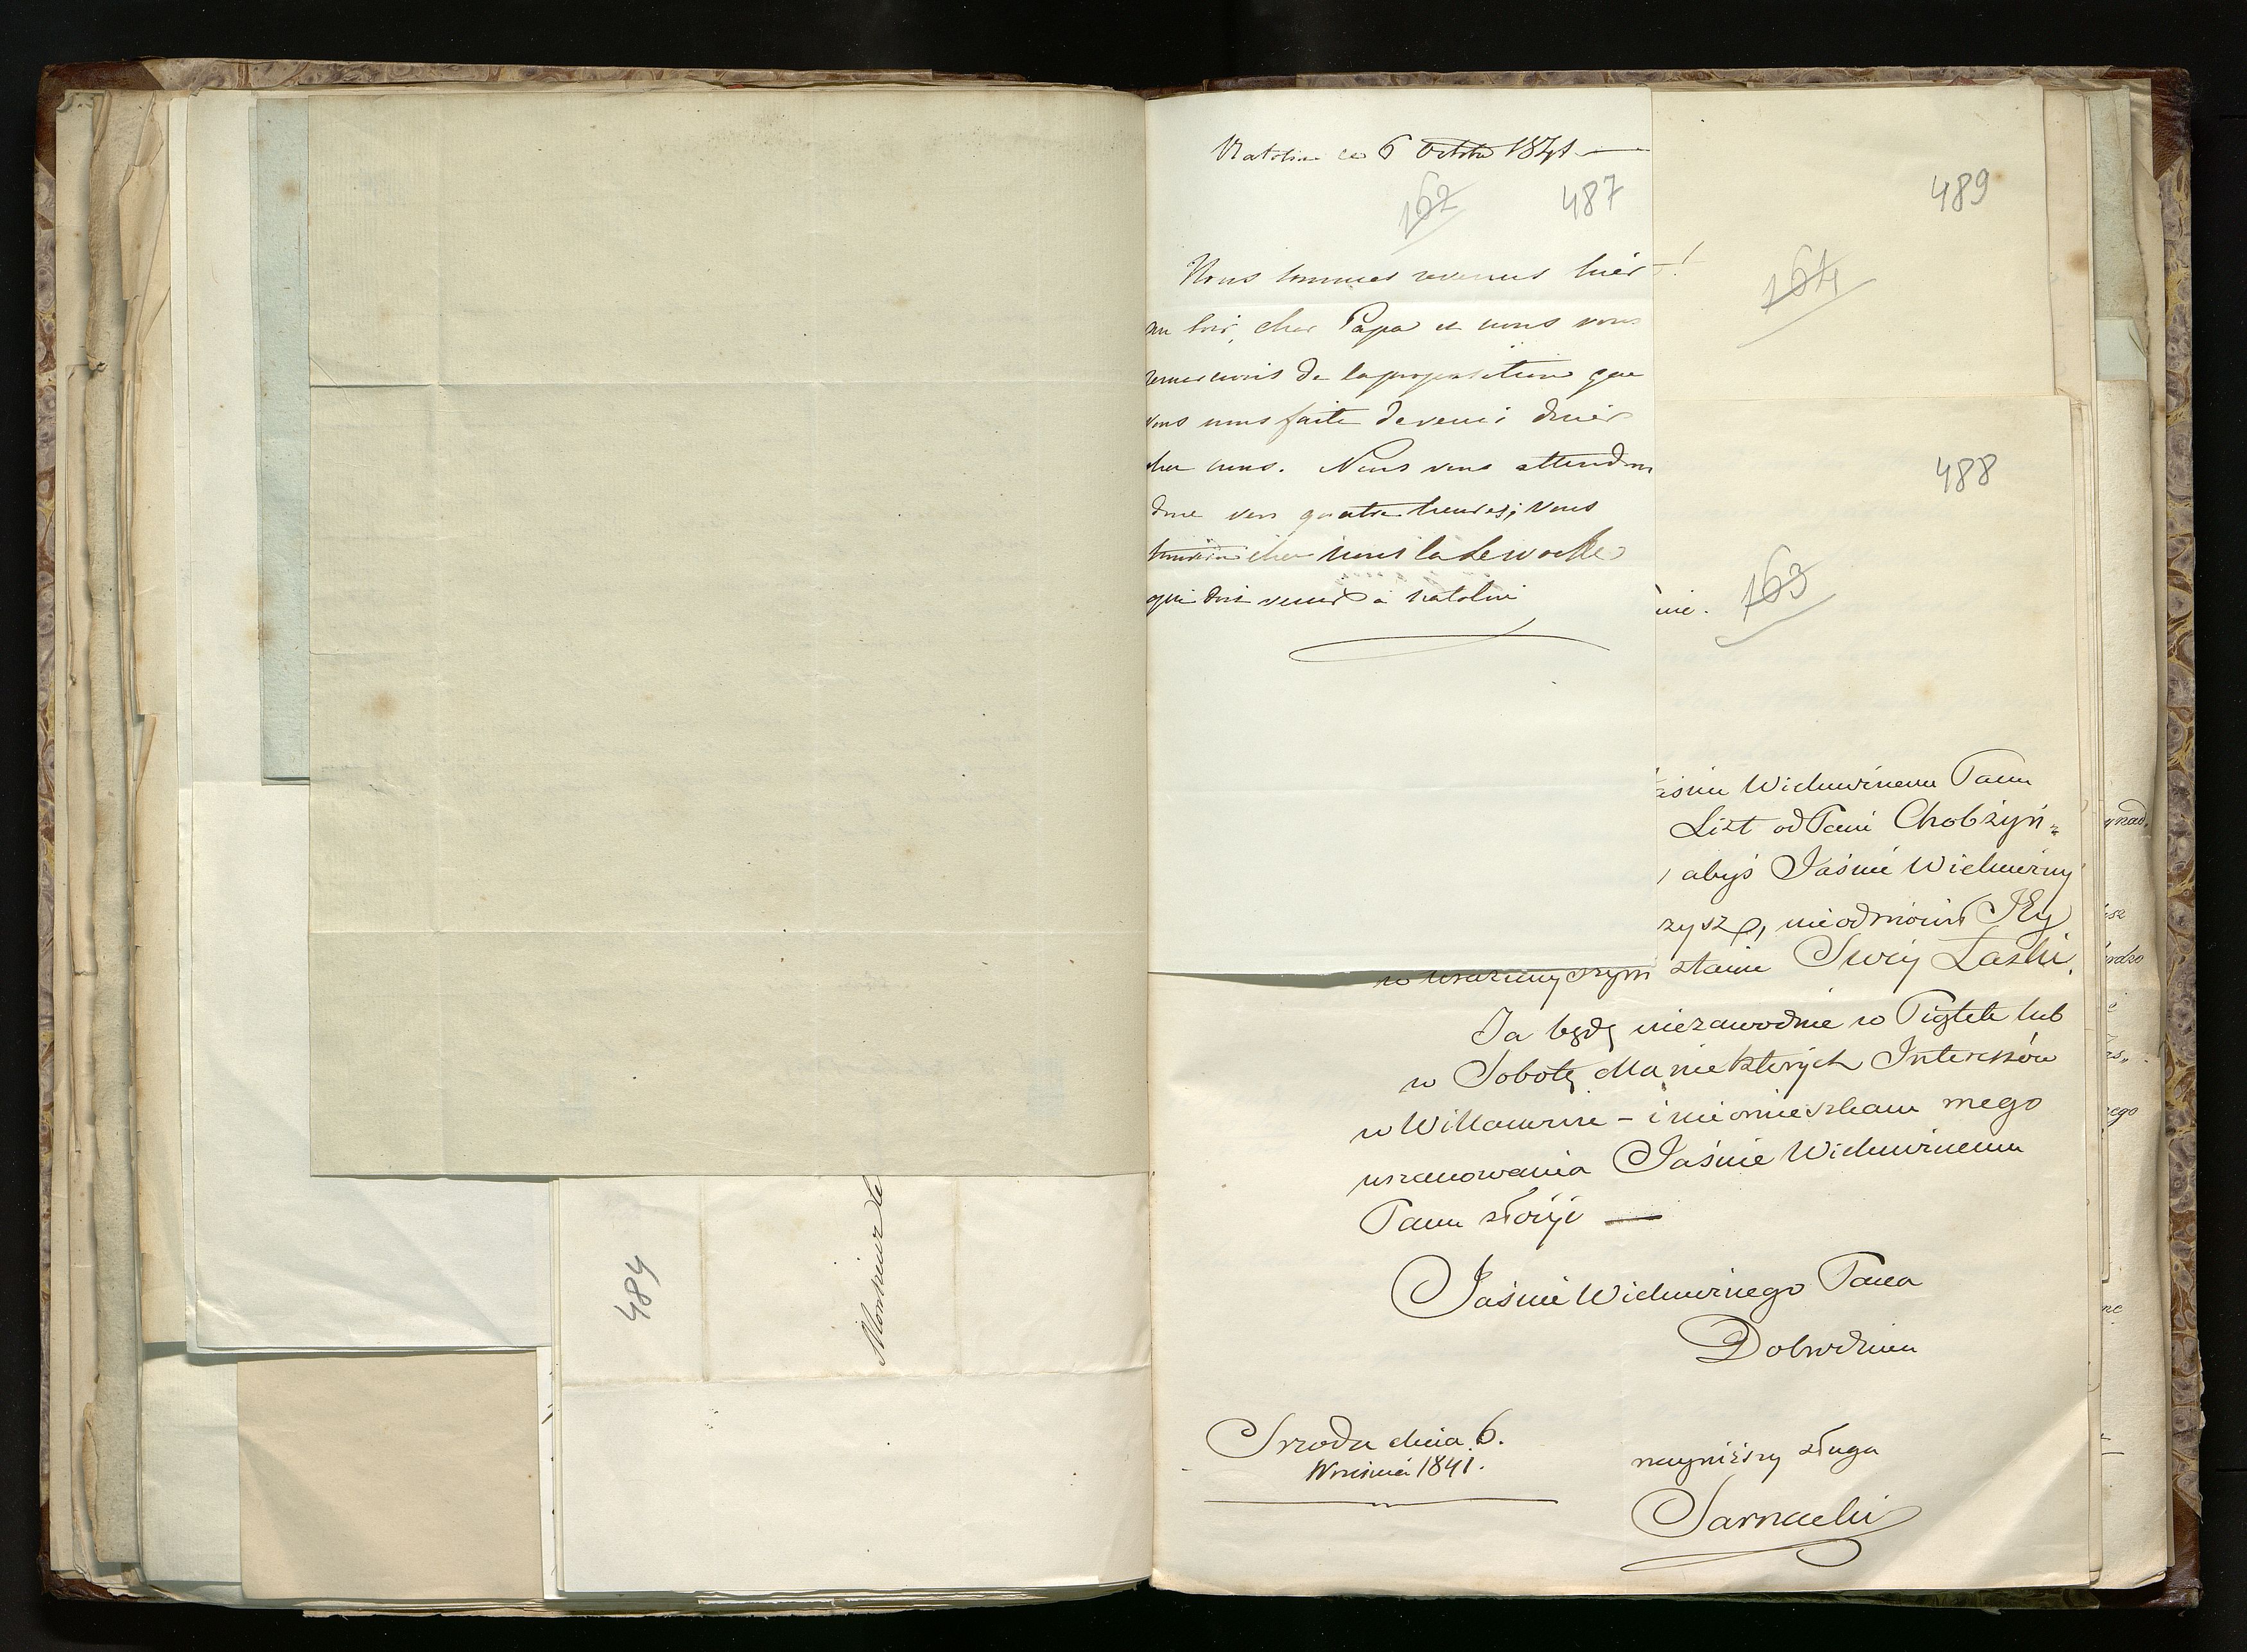 484
Monsieur le
Natolin ce 6 Octobre 1841 —
162
487
Nous sommes revenus hier
au soir, cher Papa et nous vous
remercions de la proposition que
vous nous faite de venir diner
chez nous. Nous vous attendons
donc vers quatre heures; vous
chez nous la
qui doit venir à Natolin
489
164
488
nie.
163
aśnie Wielmożnemu Panu
List od Pani Chobżyń=
abyś Jaśnie Wielmożny
zysz, nieodmówił Jey
w stanie Swéy Łaski.
Ja będę niezawodnie w Piątek lub
w Sobotę dla niektórych Interessów
w Willanowie – i nieomieszkam mego
uszanowania Jaśnie Wielmożnemu
Panu złożyć —
Jaśnie Wielmożnego Pana
Dobrodzieia
Srzoda dnia 6.
Wrzesnia 1841.
nayniższy sługa
Sarnacki
ynad.
isz
ardzo
ego
ne